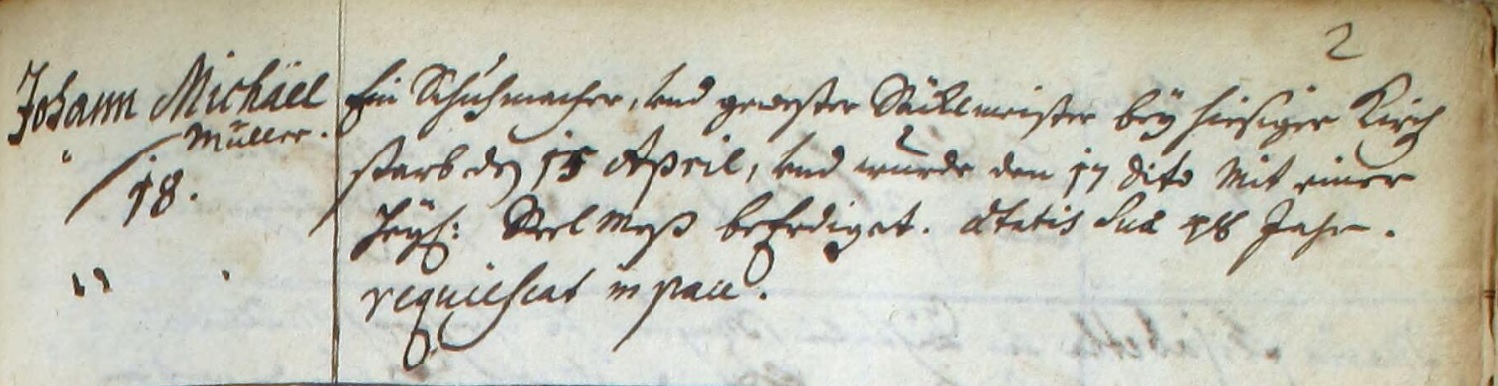 2
Johann Michäel
Müller.
18.
Ein Schuhmacher, und gewester Säklmeister beÿ hiesiger Kirch
starb den 15 April, und wurde den 17 dito Mit einer
Heÿl: Seel Meß beErdiget. Ætatis Suæ 48 Jahr.
requiescat in pace.